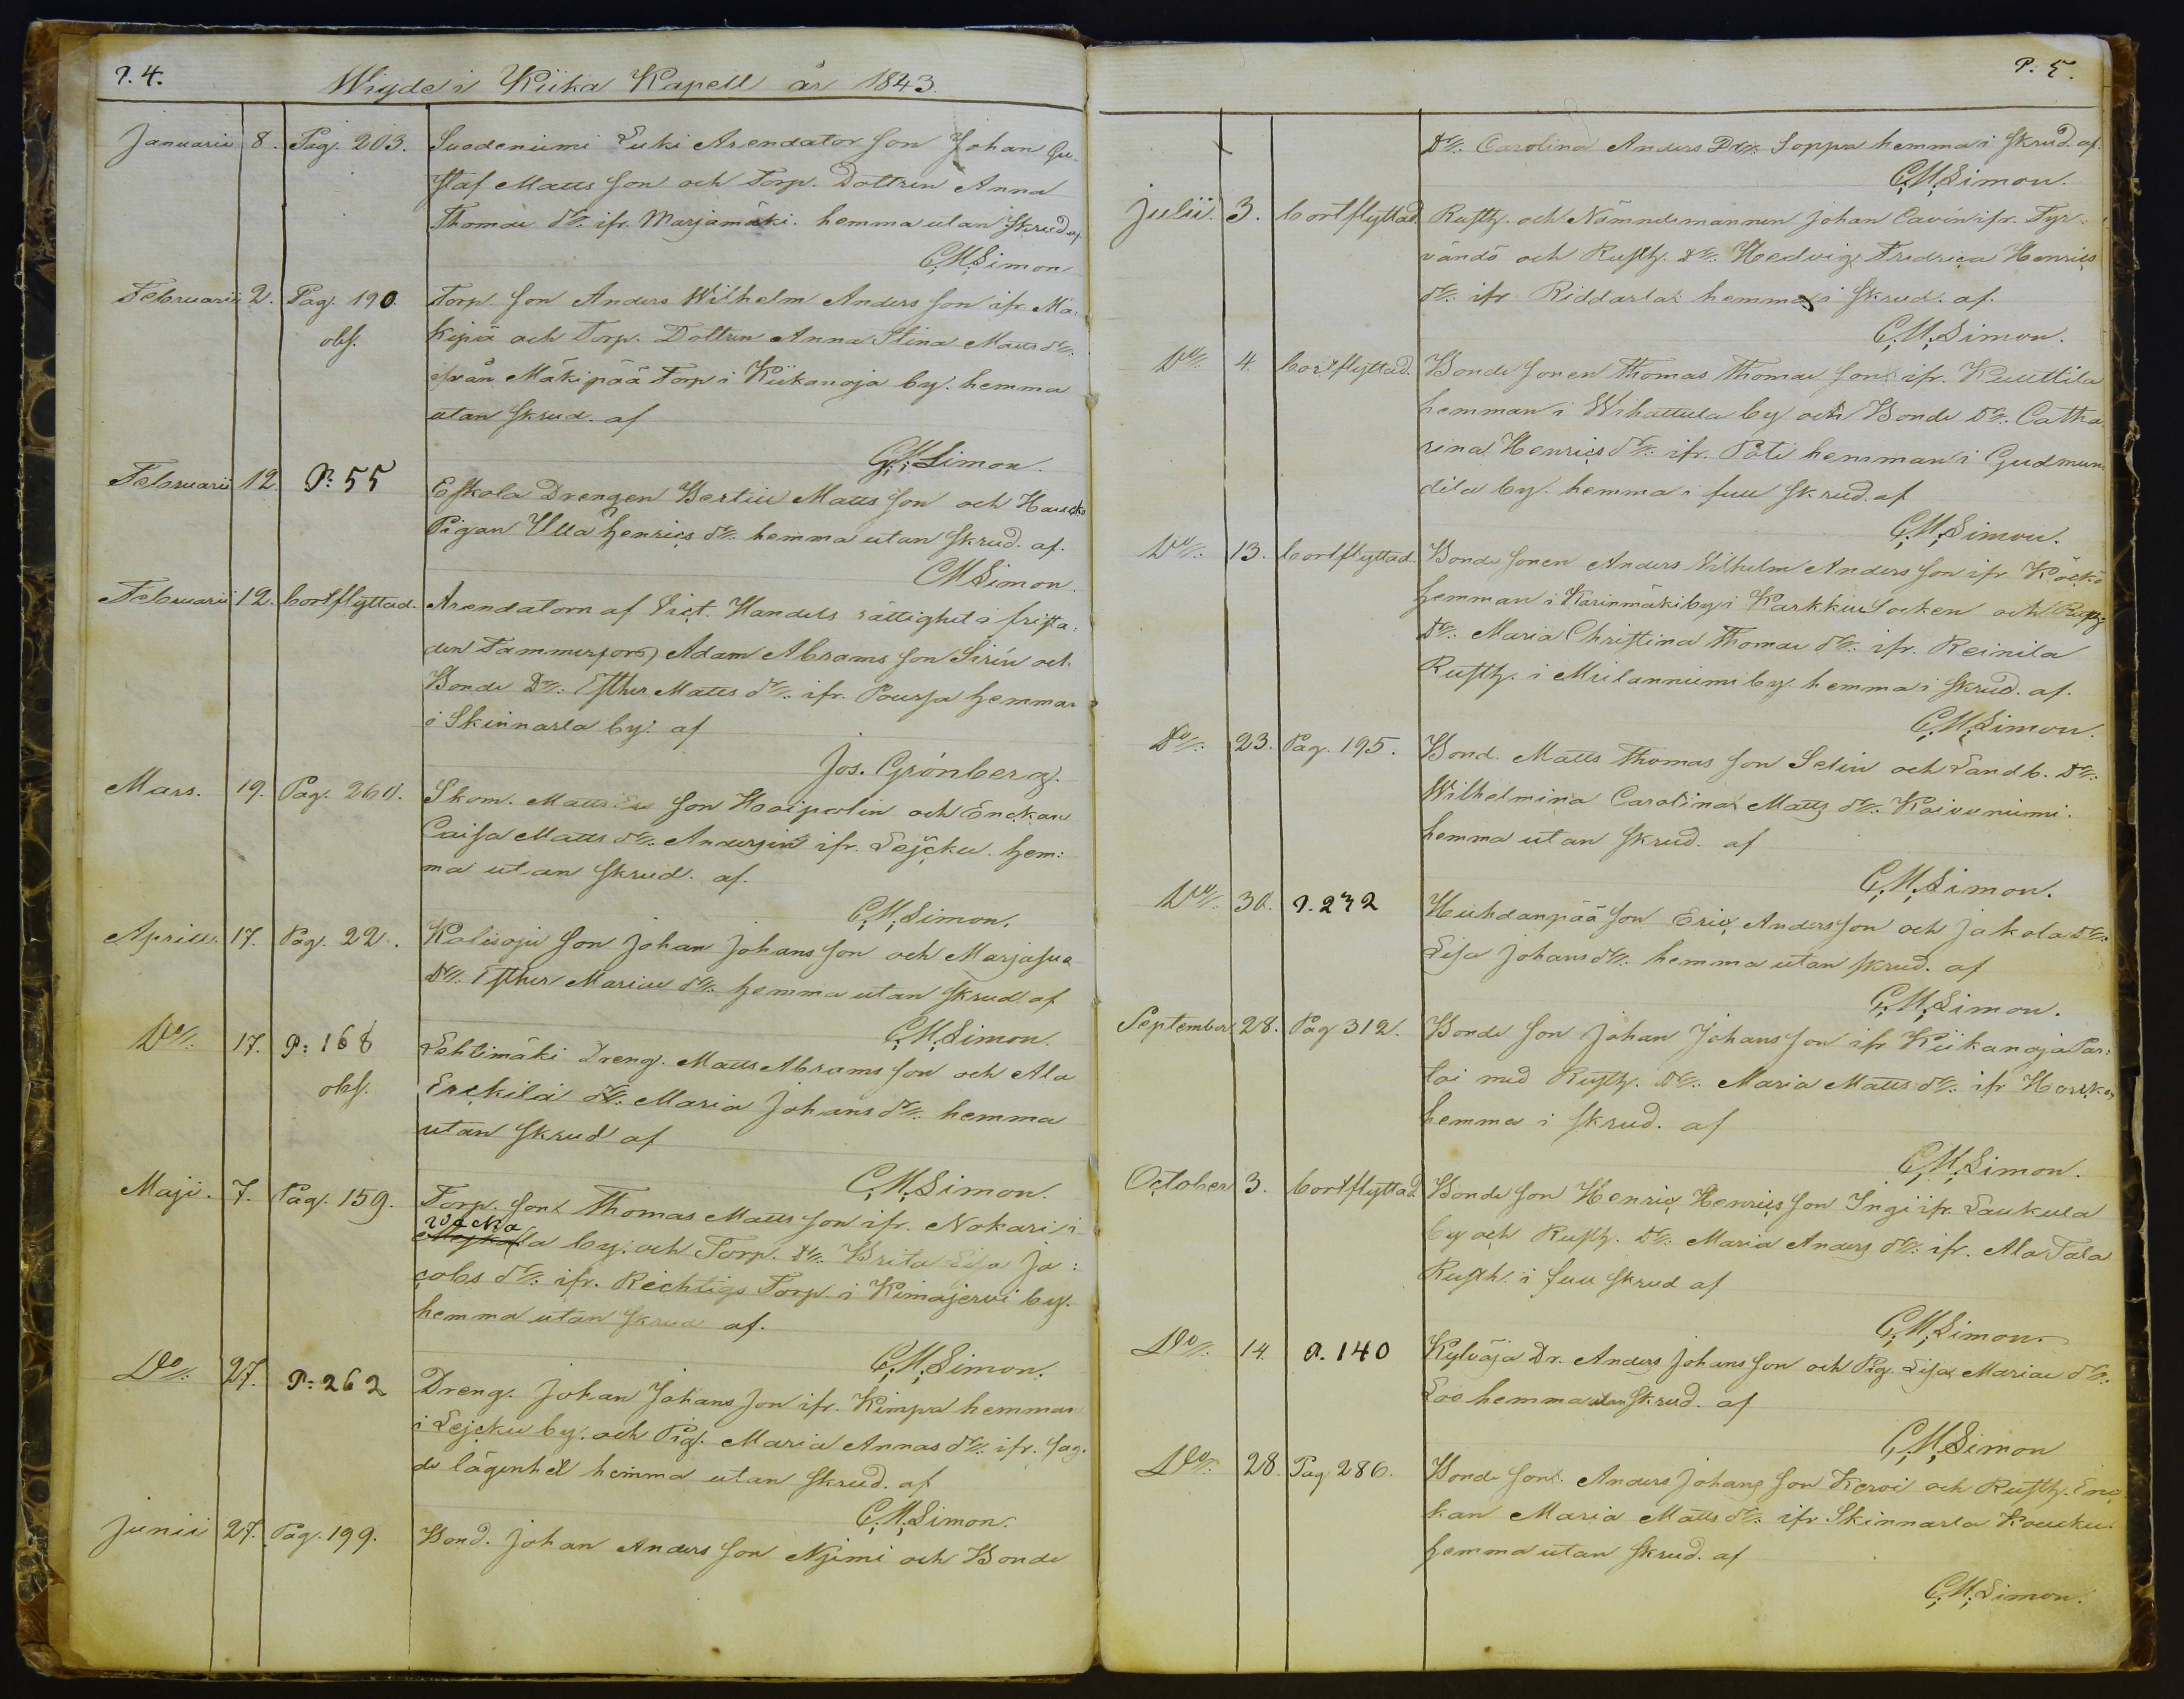 P. 4.
Wigde i Kiika Kapell år 1843.
Januarii 8. Pag. 203. Suodeniemi Luki Arendator Son Johan Gu-
staf Matts Son och Torp. Dottren Anna
Thomæ dr. ifr. Marjamäki. hemma utan Skrud af
C,M,Simon
Februarii 2. Pag. 190. Torp. Son Anders Wilhelm Anders Son ifr. Mä:
obs. kipä och Torp. Dottren Anna Stina Matts dr.
ifrån Mäkipää Torp i Kiikanoja by. hemma
utan Skrud. af
C,M,Simon.
Februarii 12. P: 55 Eskola Drengen Bertill Matts Son och
Pigan Ulla Henrics dr. hemma utan Skrud. af.
CMSimon.
Februarii 12. bortflyttad. Arendatorn af Vict. Handels rättighet i frista:
den Tammerfors, Adam Abrams Son Sirén och
Bonde Dr: Esther Matts dr. ifr. Poussa hemman
i Skinnarla by. af
Jos. Grönberg.
Mars. 19. Pag. 260. Skom. Matts Son Haaipolin och Enckan
Caisa Matts dr. Andersin ifr. Lejcku. hem:
ma utan Skrud. af.
C,M,Simon.
Aprill. 17. Pag. 22. Kalisoju Son Johan Johans Son och Marjasua
Dr. Esther Mariæ dr. hemma utan Skrud. af
C,M,Simon.
Do. 17. P: 168 Lehtimäki Dreng. Matts Abrams Son och Ala
obs. Erckilä dr. Maria Johans dr. hemma
utan Skrud af
C,M,Simon.
Maji. 7. Pag. 159. Torp. Son Thomas Matts Son ifr. Nokari i
wacka
la by. och Torp. Dr. Brita Lisa Ja:
cobs dr. ifr. Rechtigs Torp. i Kimajerwi by.
hemma utan Skrud af.
C,M,Simon.
Do. 27. P: 262 Dreng. Johan Johans Son ifr. Kimpa hemman
i Lejcku by. och Pig. Maria Annas dr. ifr. sag.
de lägenhet hemma utan Skrud. af
C,M,Simon.
Junii 27. Pag. 199. Bond. Johan Anders Son Njemi och Bonde
P: 5.
Dr: Carolina Anders Dr. Soppa hemma i Skrud. af.
C,M,Simon.
Julii. 3. bortflyttad. Rusth. och Nämndemannen Johan Cavén ifr. Tyr:
vändö och Rusth. Dr. Hedvig Fredrica Henrics
dr. ifr. Riddarla hemma i Skrud. af.
C,M,Simon.
Do. 4. bortflyttad. Bonde Sonen Thomas Thomæ Son ifr. Kuuttila
hemman i Wihattula by och Bonde Dr. Catha
rina Henrics dr. ifr. Poti hemman i Gudmun
dila by. hemma i full Skrud. af
C,M,Simon.
Do. 13. bortflyttad. Bonde Sonen Anders Wilhelm Anders Son ifr Köckö
hemman i Karinmäki by i Karkku Socken och Rusth
Dr. Maria Christina Thomæ dr. ifr. Reinila
Rusth. i Meilanniemi by. hemma i Skrud. af.
C,M,Simon.
Do. 23. Pag. 195. Bond. Matts Thomas Son Selin och Landb. Dr.
Wilhelmina Carolina Matts dr. Koivuniemi.
hemma utan Skrud. af
C,M,Simon.
Do. 30. P. 272 Huhdanpää Son Eric Anders Son och Jakola Dr.
Lisa Johans dr. hemma utan Skrud. af
C,M,Simon.
September 28. Pag 312. Bonde Son Johan Johans Son ifr Kiikanoja Par:
toi med Rusth. Dr. Maria Matts dr. ifr
hemma i Skrud. af
C,M,Simon.
October 3. bortflyttad. Bonde Son Henric Henrics Son Ingi ifr. Laukula
by och Rusth. Dr. Maria Anders dr. ifr. Ala Tala
Rusth. i full Skrud af
C,M,Simon.
Do. 14. P. 140 Kylväja Dr. Anders Johans Son och Pig. Lisa Mariæ dr.
hemma utan Skrud. af
C,M,Simon
Do. 28. Pag 286. Bonde Son. Anders Johans Son Keroi och Rusth. Enc
kan Maria Matts dr. ifr Skinnarla Koucku.
hemma utan Skrud. af
C,M,Simon.